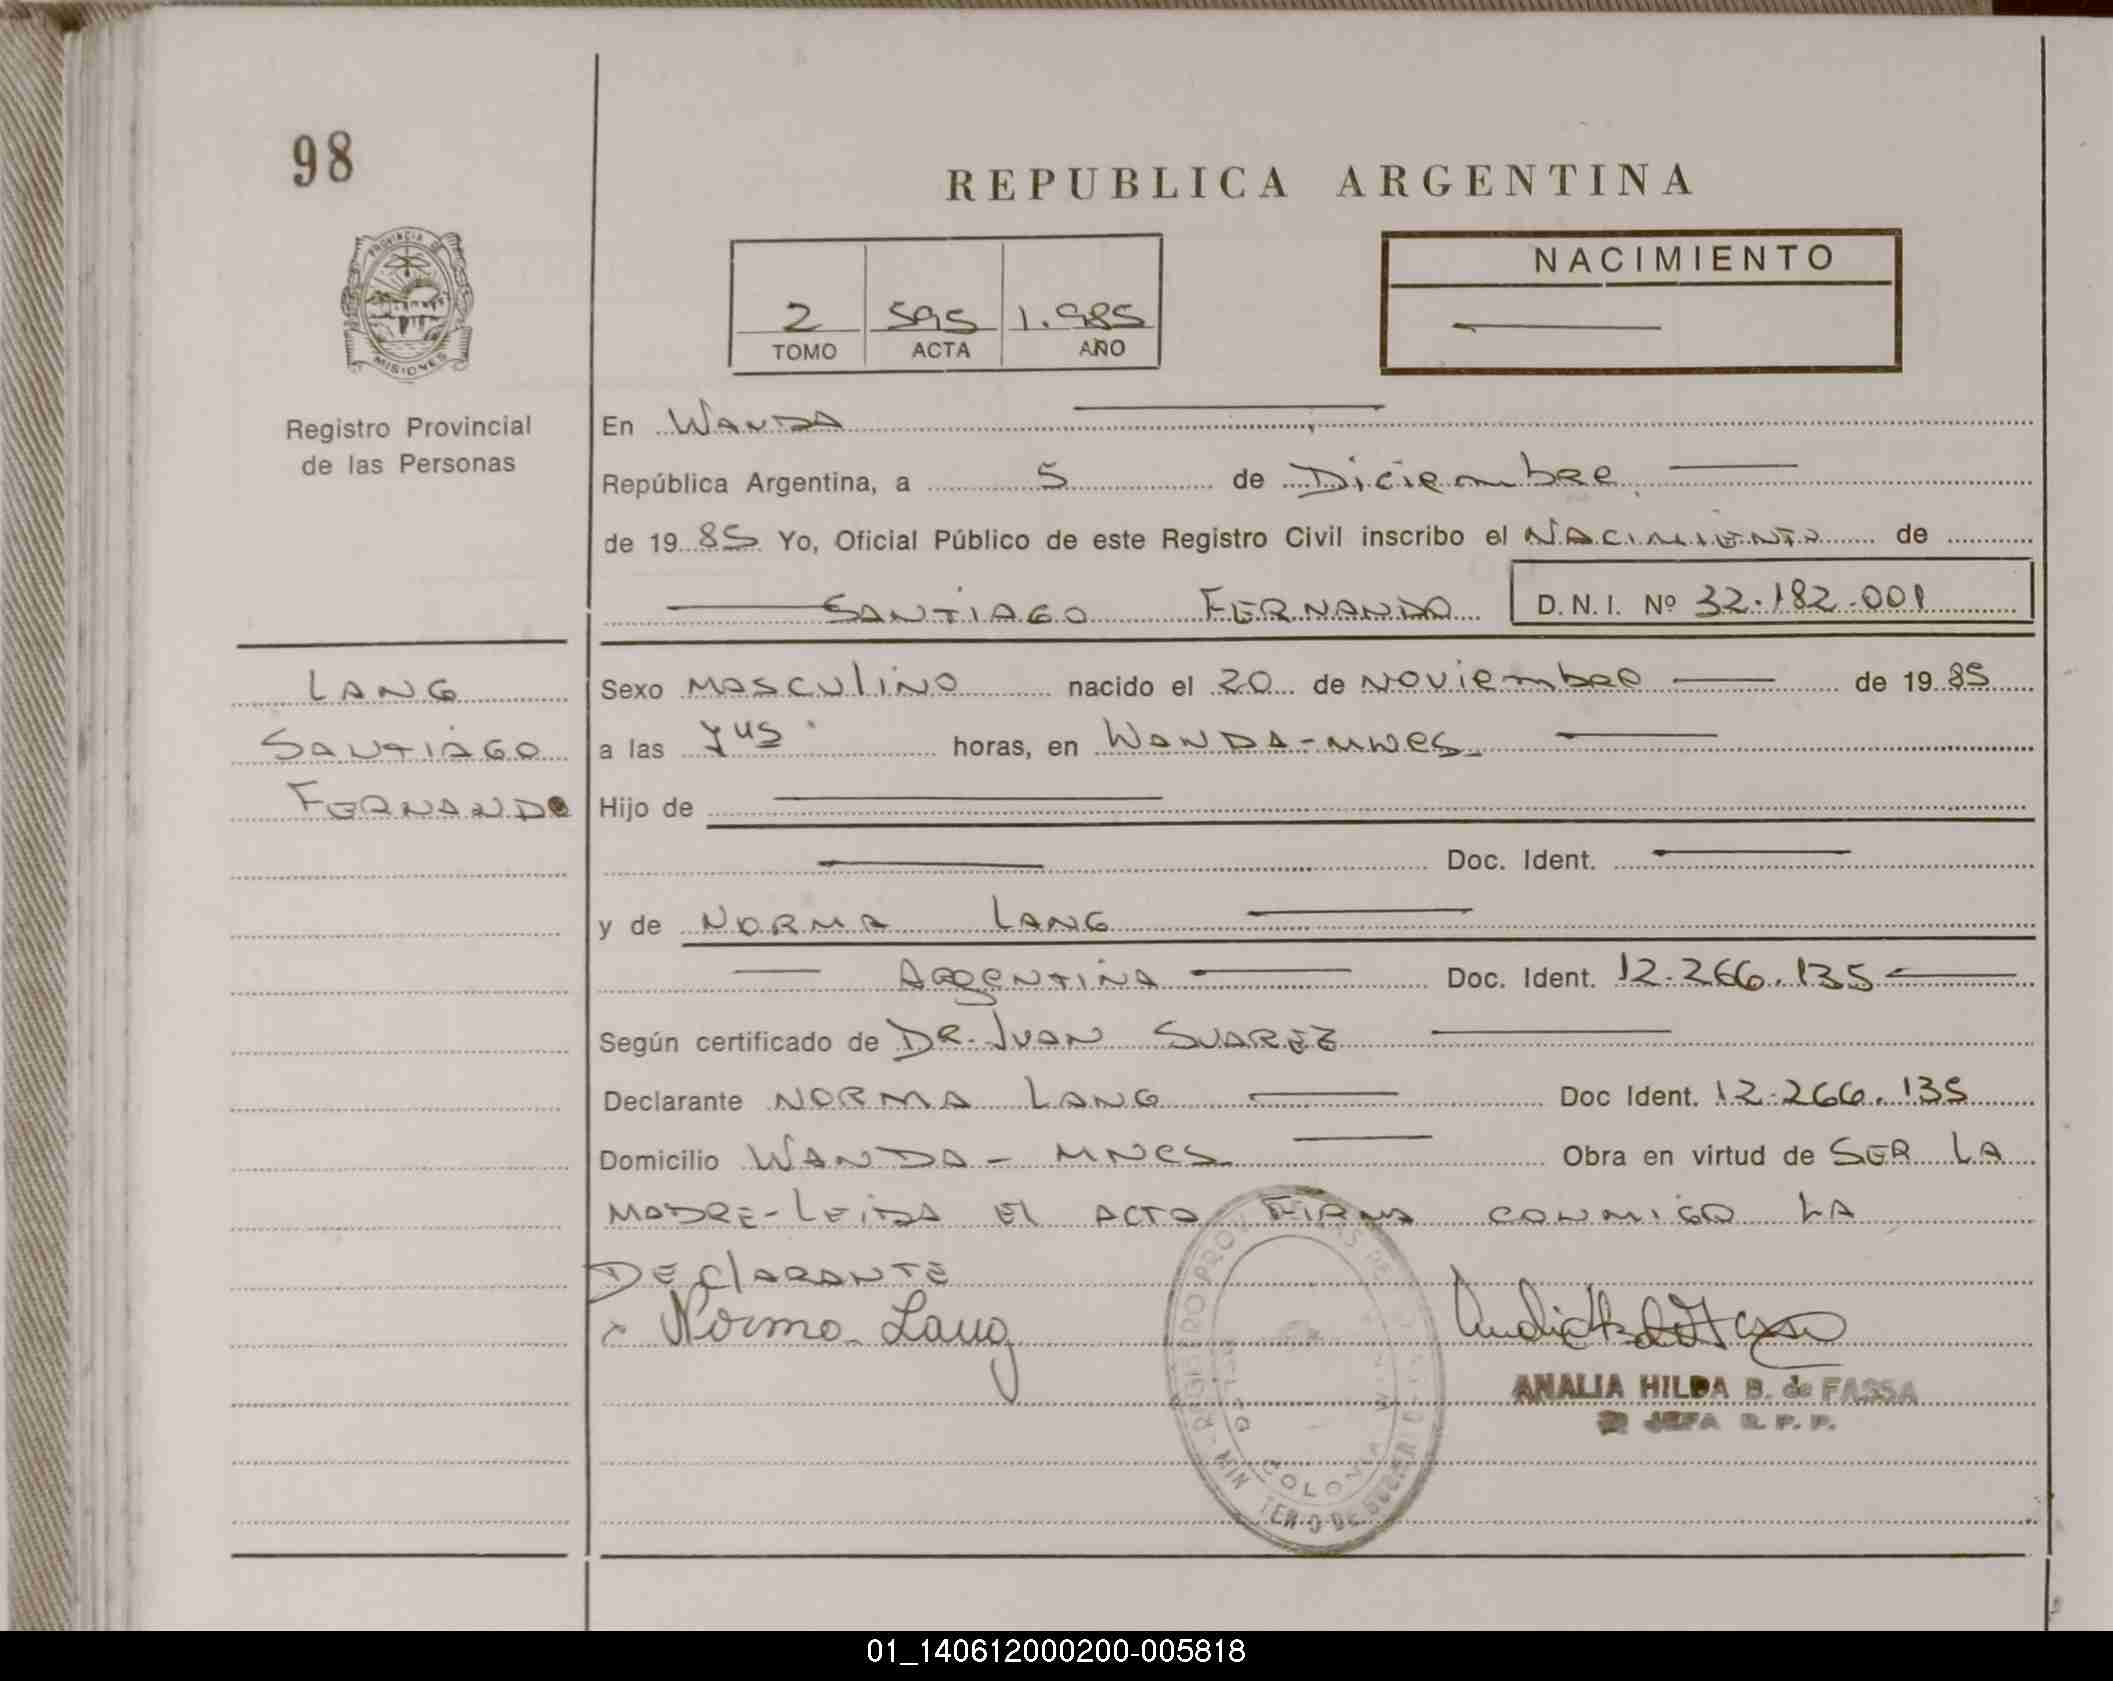 98
REPUBLICA ARGENTINA
NACIMIENTO
2 595 1.985
TOMO ACTA AÑO
PROVINCIA DE
MISIONES
Registro Provincial
de las Personas
En WANDA
República Argentina, a 5 de Diciembre
de 1985 Yo, Oficial Público de este Registro Civil inscribo el NACIMIENTO de
SANTIAGO FERNANDO D.N.I. Nº 32.182.001
LANG
SANTIAGO
FERNANDO
Sexo MASCULINO nacido el 20 de NOViembre de 1985
a las horas, en WANDA-MNES
Hijo de
Doc. Ident.
y de NORMA LANG
ARGENTINA Doc. Ident. 12.266.135
Según certificado de DR. JUAN SUAREZ
Declarante NORMA LANG Doc Ident. 12.266.135
Domicilio WANDA - MNES Obra en virtud de SER LA
MADRE-LEIDA EL ACTA FIRMA CONMIGO LA
DECLARANTE
x Norma Lang
ANALIA HILDA B. de FASSA
JEFA R. P. P.
01_140612000200-005818